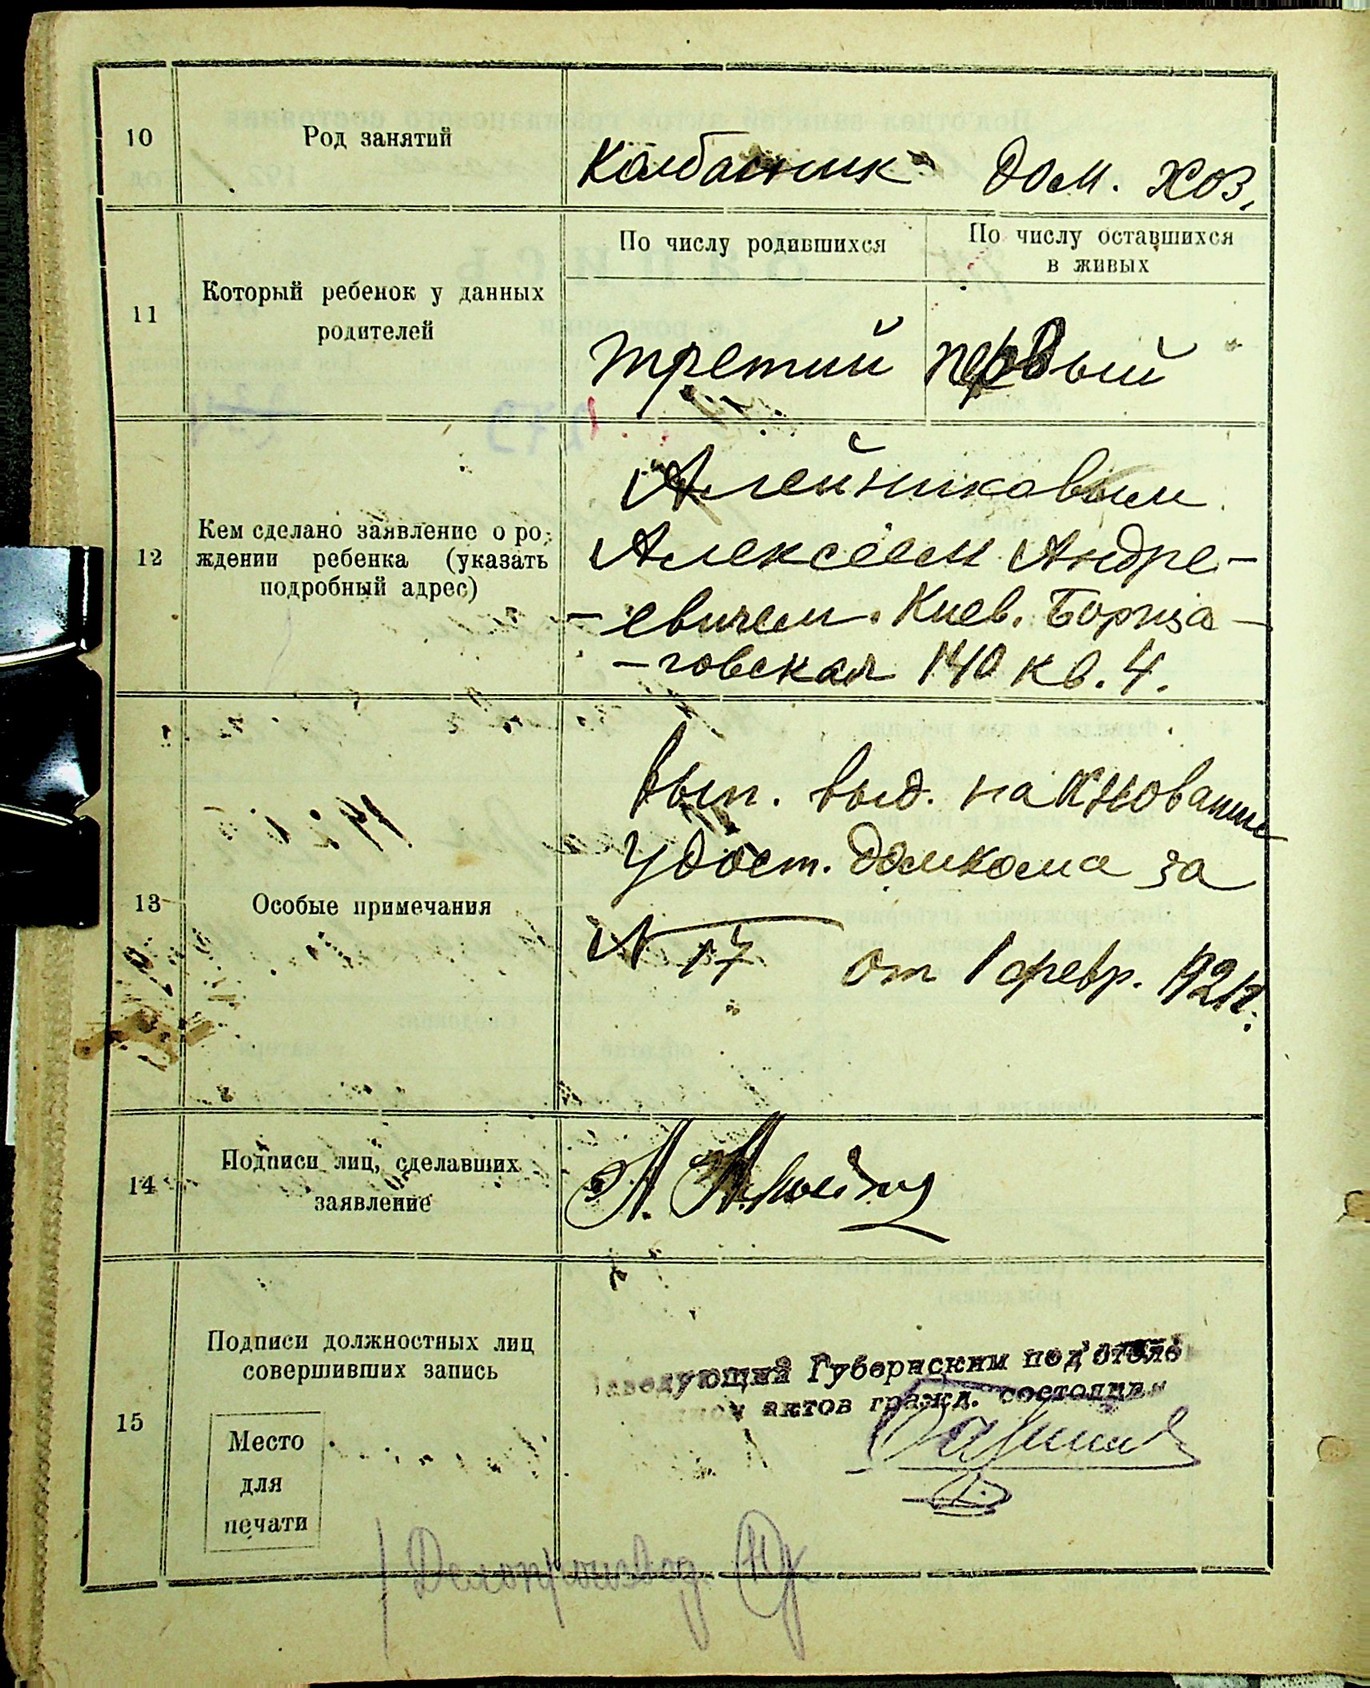 10
Род занятий
Колбасник дом. хоз.
11
Который ребенок у данных
родителей
По числу родившихся
По числу оставшихся
в живых
третий
первый
12
Кем сделано заявление о ро-
ждении ребенка (указать
подробный адрес)
Алейниковым
Алексеем Андре-
-евичем. Киев. Борща-
-говская 140 кв. 4.
13
Особые примечания
Вып. выд. на
удост. домкома за
N 17 от 1 февр. 1921г.
14
Подписи лиц, сделавших
заявление
А.
15
Подписи должностных лиц
совершивших запись
Место
для
печати
Заведующий Губернским под'отдело
актов гражд. состояния
Делопроизвод.